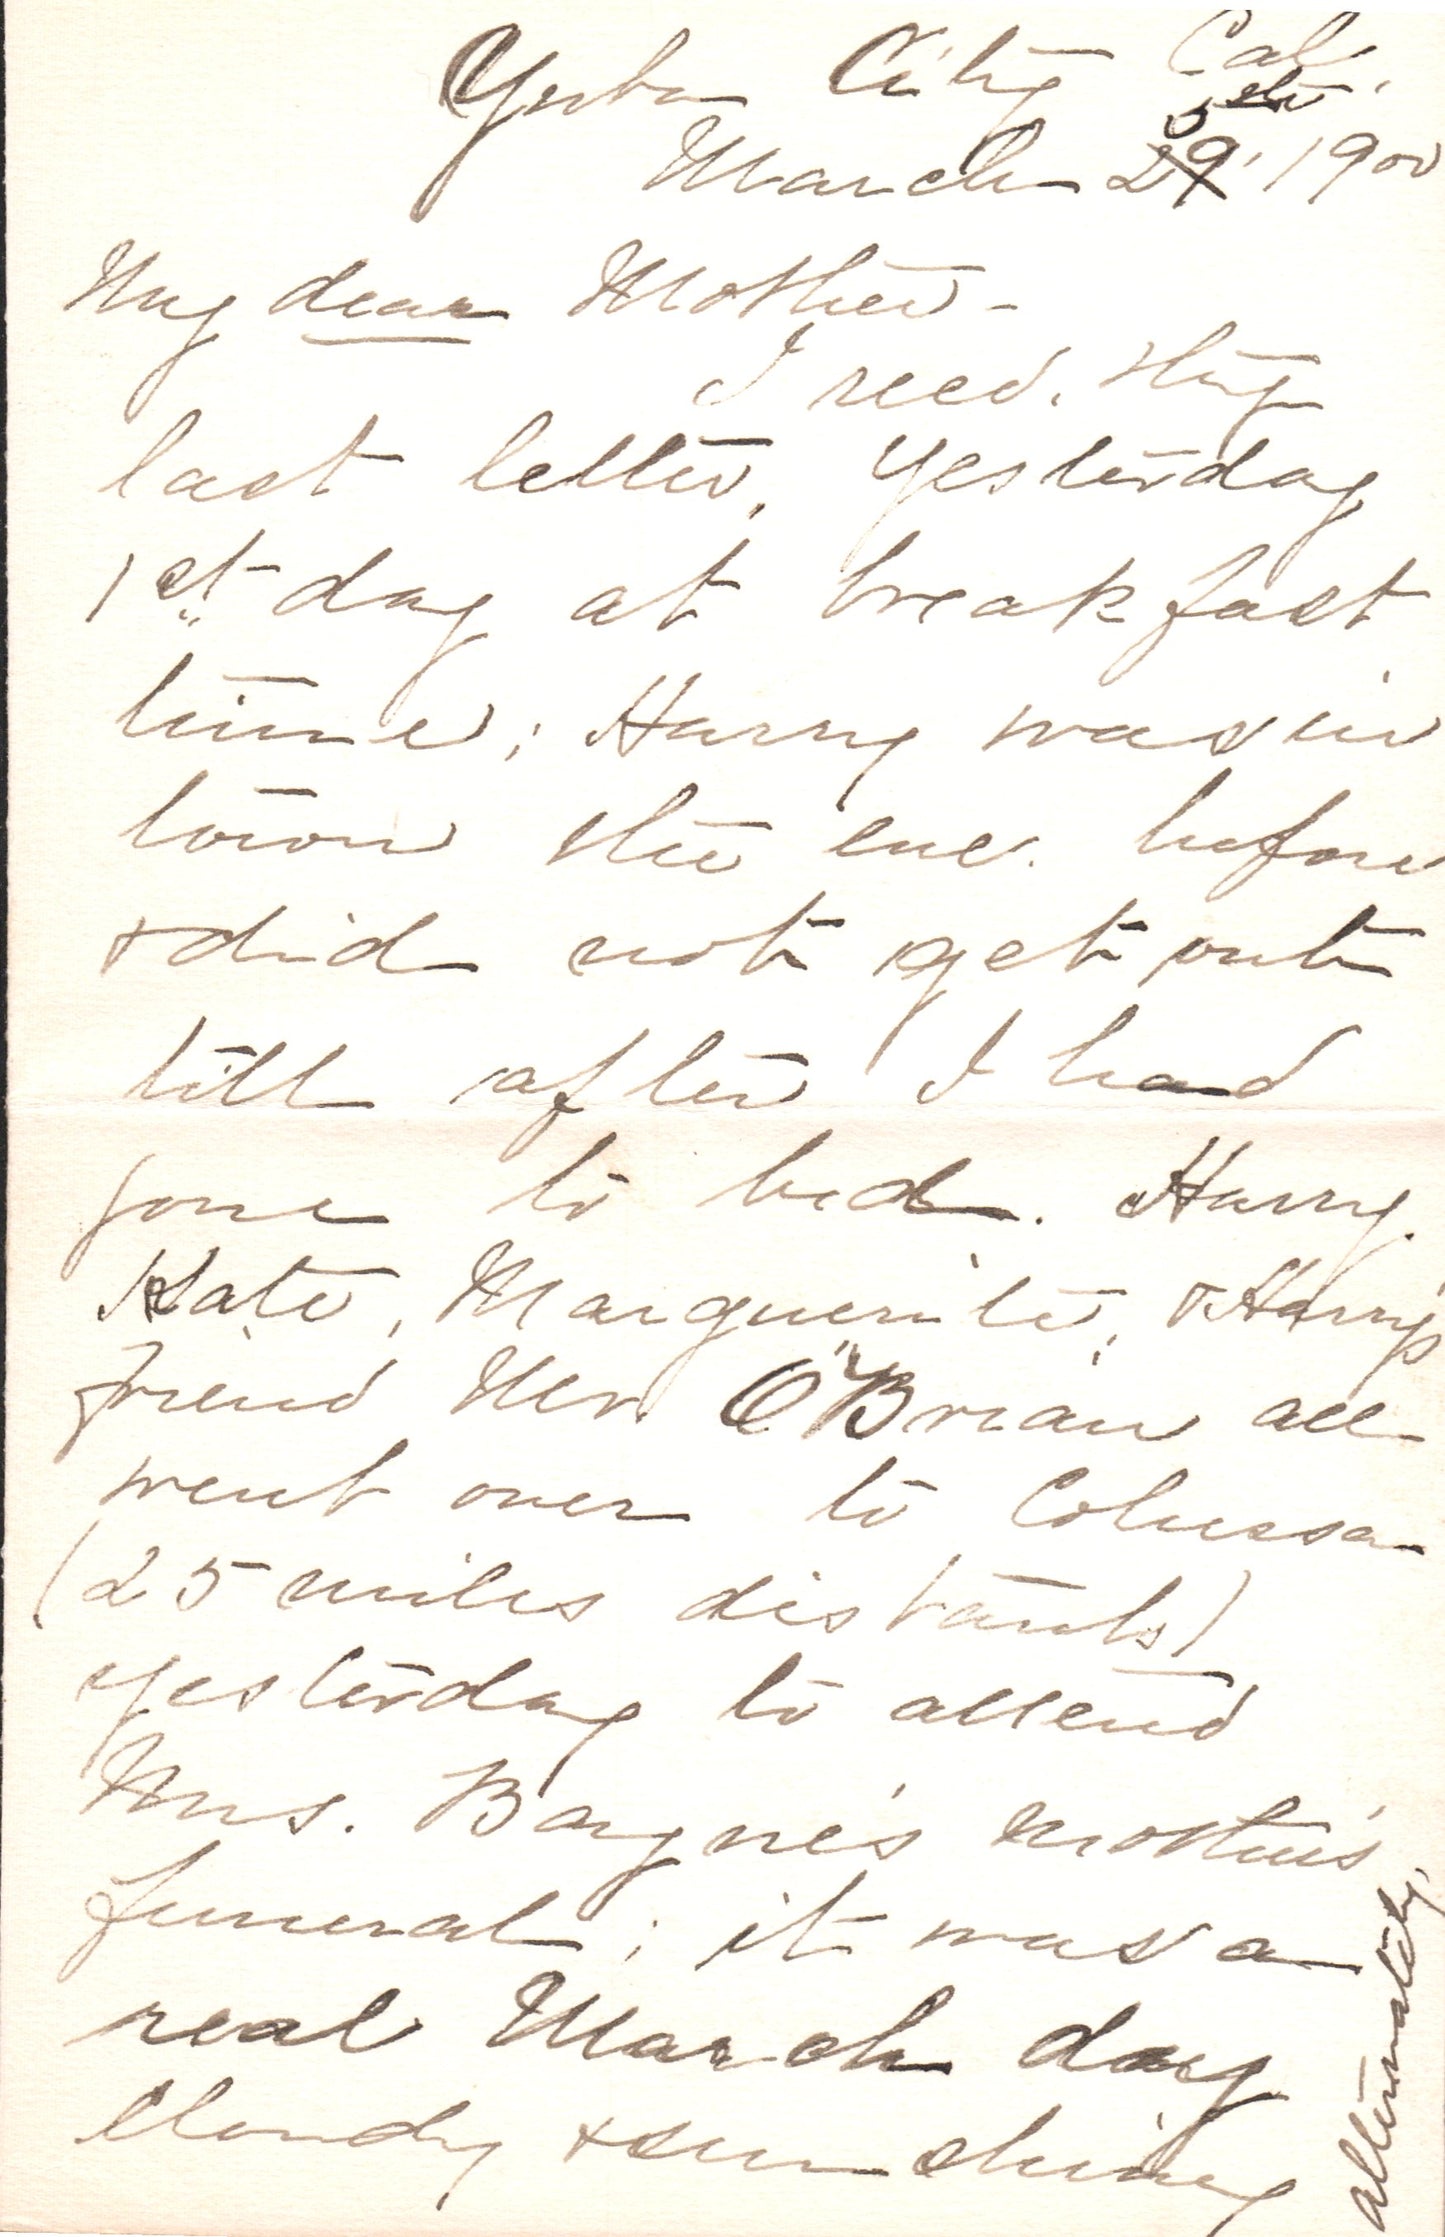 Yuba City Cal.
5th
March 29 1900
My dear Mother -
I recd. thy
last letter, yesterday
1st day at breakfast
time; Harry was in
town the eve. before
& did not get out
till after I had
gone to bed. Harry,
Kate, Marguerite, & Harry's
friend Mr. O'Brian all
went over to Colusa
(25 miles distant)
yesterday to attend
Mrs. Bayne's mother's
funeral; it was a
real March day
cloudy & sun shiney
alternately.